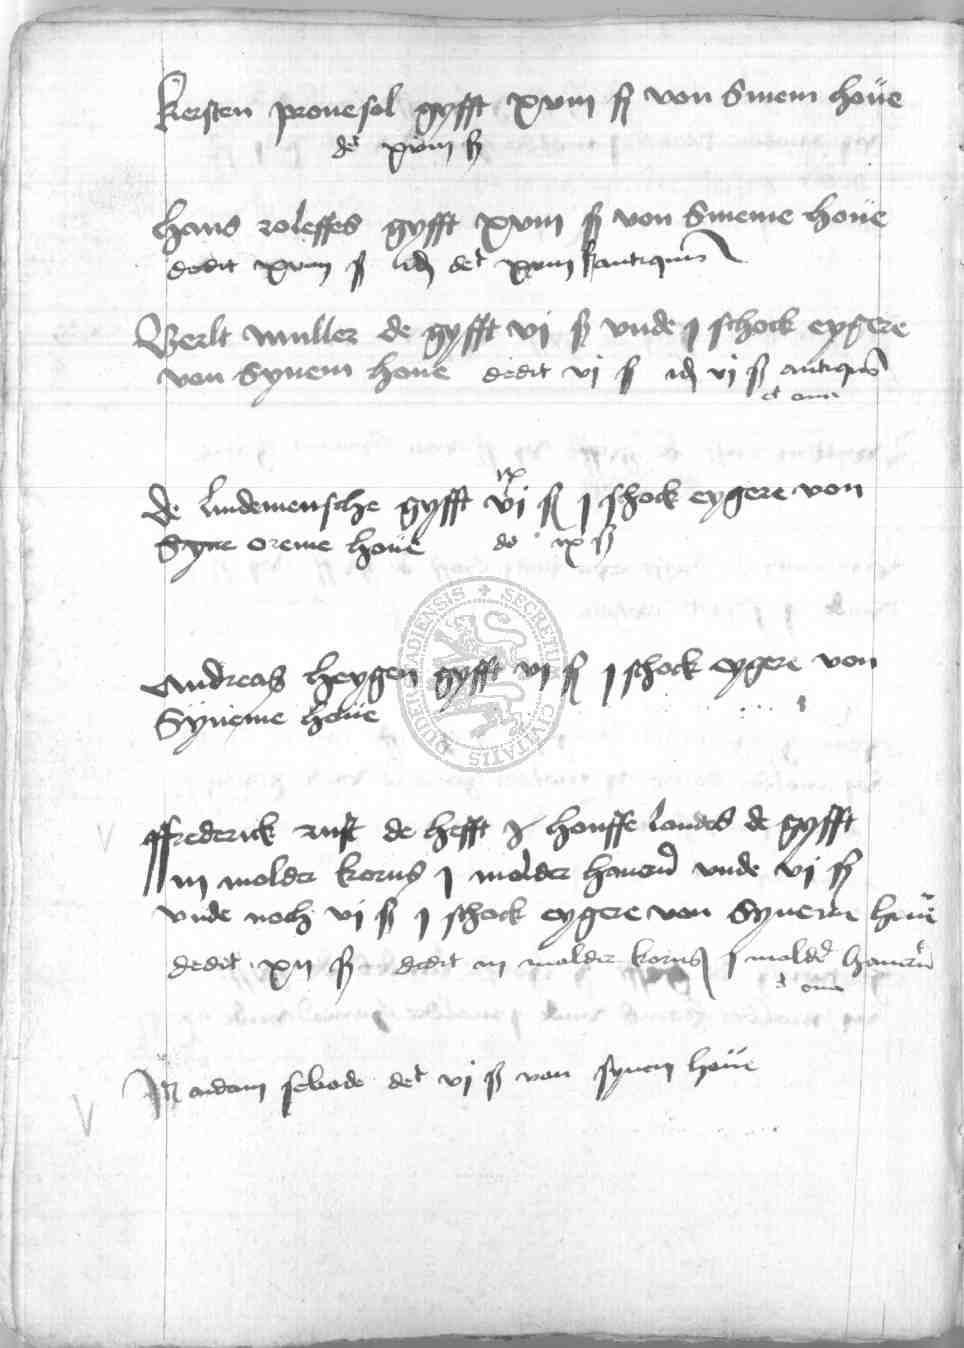 Kersten prouesol gyfft xviii ß von Sinem houe
det xviii ß
Hans roleffes gyfft xviii ß von Sineme houe
dedit xviii ß id det xviii ß antiquis
Berlt muller de gyfft vi ß vnde j schock eygere
von Synem houe dedit vi ß id vi ß antiquis
de lindemensche gyfft vi ß j schock eygere von
ix
Syne oreme houe do ix ß
Andreas heygen gyfft vi ß j schock eygere von
Syneme houe
Ffrederick rust de hefft houffe landes de gyfft
iii molder korns j molder hauern vnde vi ß
vnde noch vi ß j schock eygere von Syneme houe
dedit xii ß dedit iii molder korns j molder hauern
adam det vi ß von synem houe
SECRETUM CIVITATIS DUDERSTADIENSIS